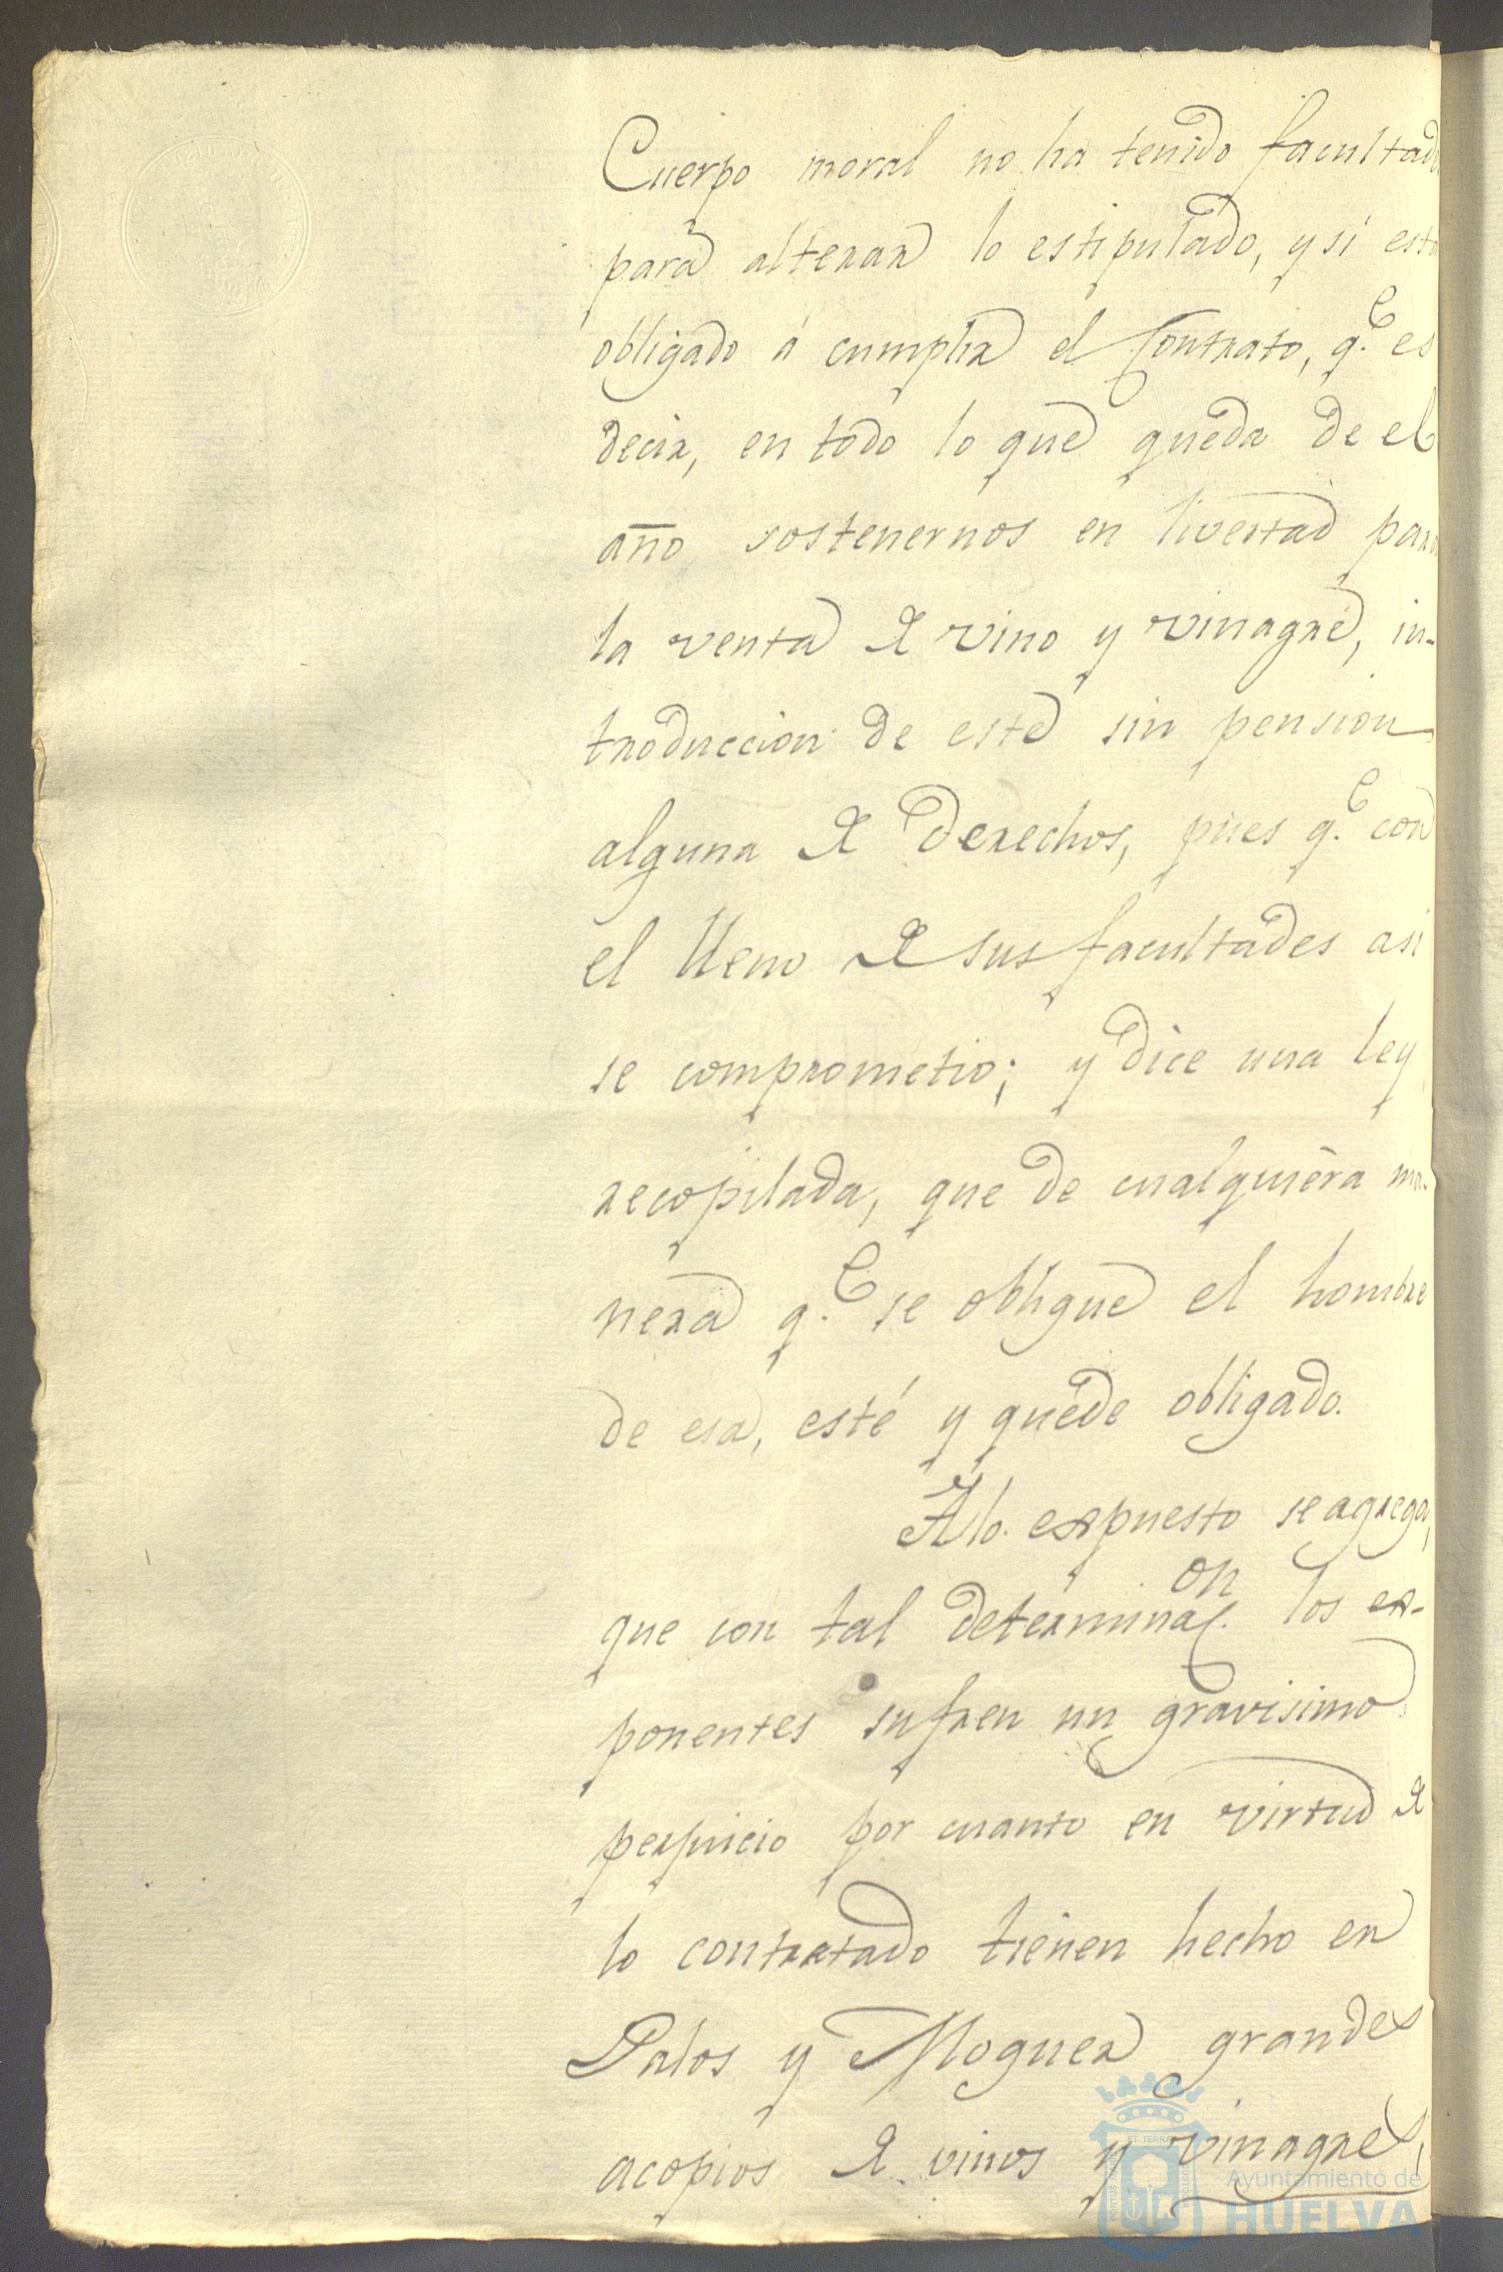 Cuerpo moral no ha tenido facultad
para alterar lo estipulado, y sí esta
obligado á cumplir el Contrato, q.e es
decir, en todo lo que queda de el
año sostenernos en livertad para
la venta de vino y vinagre, in-
troduccion de este sin pension
alguna de derechos, pues q.e con
el lleno de sus facultades asi
se comprometio; y dice una ley
recopilada, que de cualquiera ma-
nera q.e se obligue el hombre
de esa, esté y quede obligado.
A lo expuesto se agrega,
que con tal determinac.on los ex-
ponentes sufren un gravisimo
perjuicio por cuanto en virtud de
lo contratado tienen hecho en
Palos y Moguer grandes
acopios de vinos y vinagres,
Ayuntamiento de
HUELVA